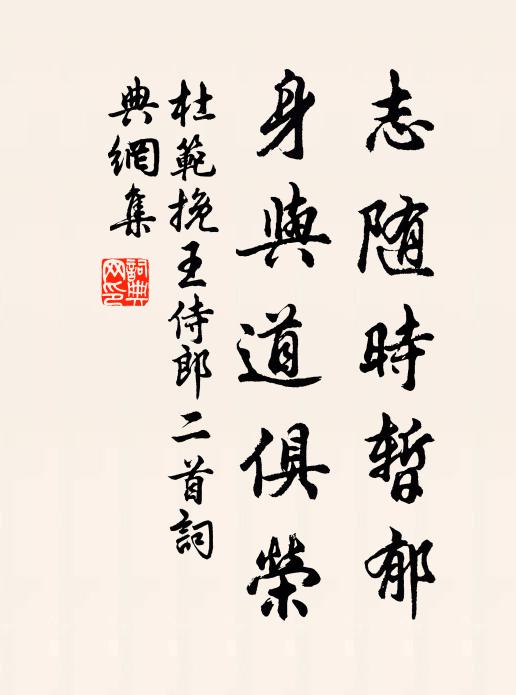 志随時暫郁
身與道俱榮
杜範挽王侍郎二首詞
典網集
詞典
网印